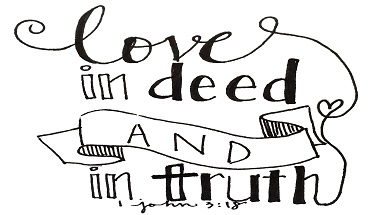 love
in deed
AND
in truth
1 john 3:18